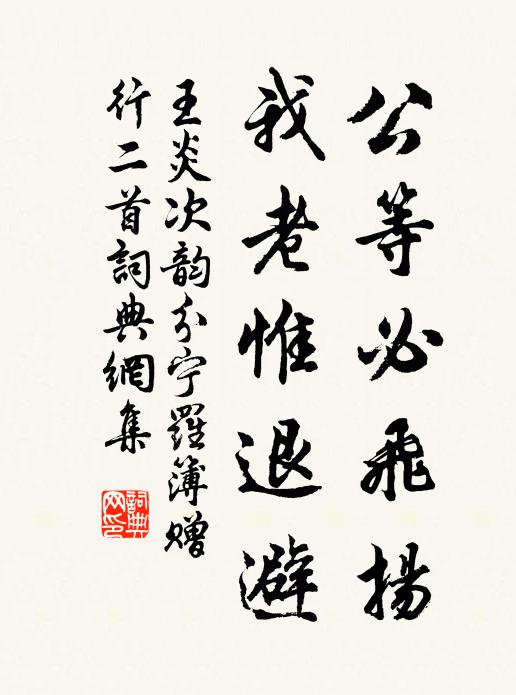 公等必飛揚
我老惟退避
王炎次韵分宁羅簿赠
行二首詞典網集
詞典
网印